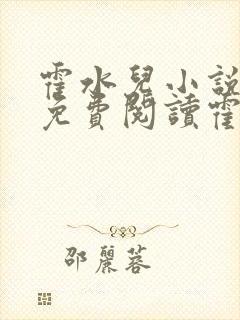 霍水兒小說
免費閱讀霍
邵麗蓉